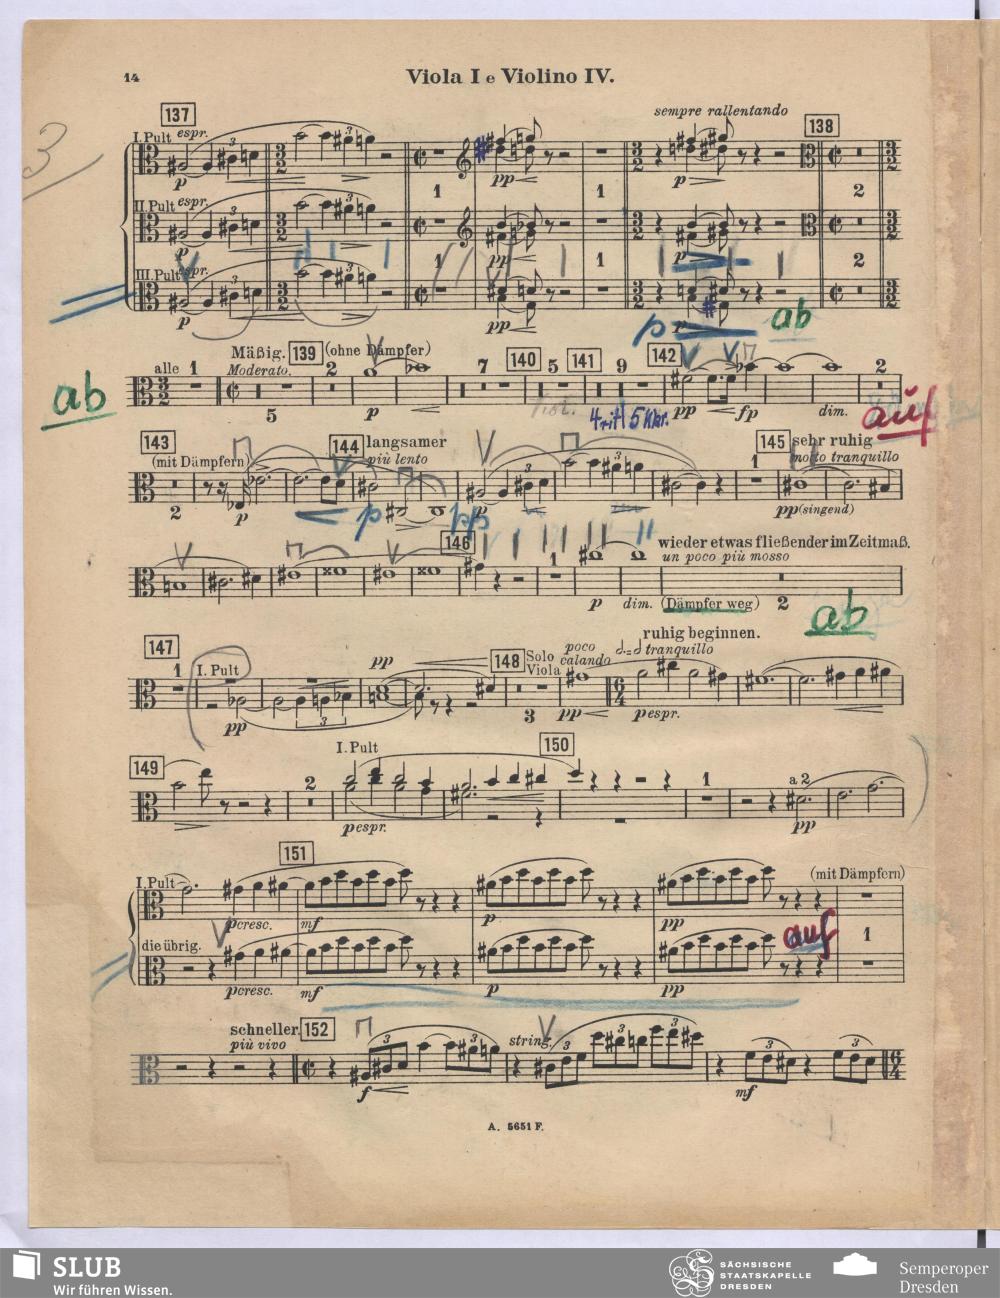 14
Viola I e Violino IV.
3
137
I. Pult espr.
sempre rallentando
138
p
pp
p
1 1 2
II. Pult espr.
p
pp
p
1 1 2
III. Pult espr.
p
pp
p
p
ab
ab
alle 1
Mäßig.
Moderato.
139
(ohne Dämpfer)
2
7
140
5
141
9
142
2
5
p
4 rit 5
pp
fp
dim.
auf
143
(mit Dämpfern)
144
langsamer
più lento
1
145
sehr ruhig
molto tranquillo
2
p
p
p
pp
p
pp (singend)
146
1
wieder etwas fließender im Zeitmaß.
un poco più mosso
p
dim.
(Dämpfer weg)
2
ab
147
1
I. Pult
pp
3
pp
148
Solo Viola
poco calando
ruhig beginnen.
tranquillo
3
pp
p espr.
149
2
I. Pult
150
1
a 2
p espr.
pp
151
I. Pult
(mit Dämpfern)
p cresc.
mf
p
pp
die übrig.
auf
1
p cresc.
mf
p
pp
schneller.
più vivo
152
string.
3 3 3 3 3 3
f
mf
A. 5651 F.
SLUB
Wir führen Wissen.
SÄCHSISCHE
STAATSKAPELLE
DRESDEN
Semperoper
Dresden